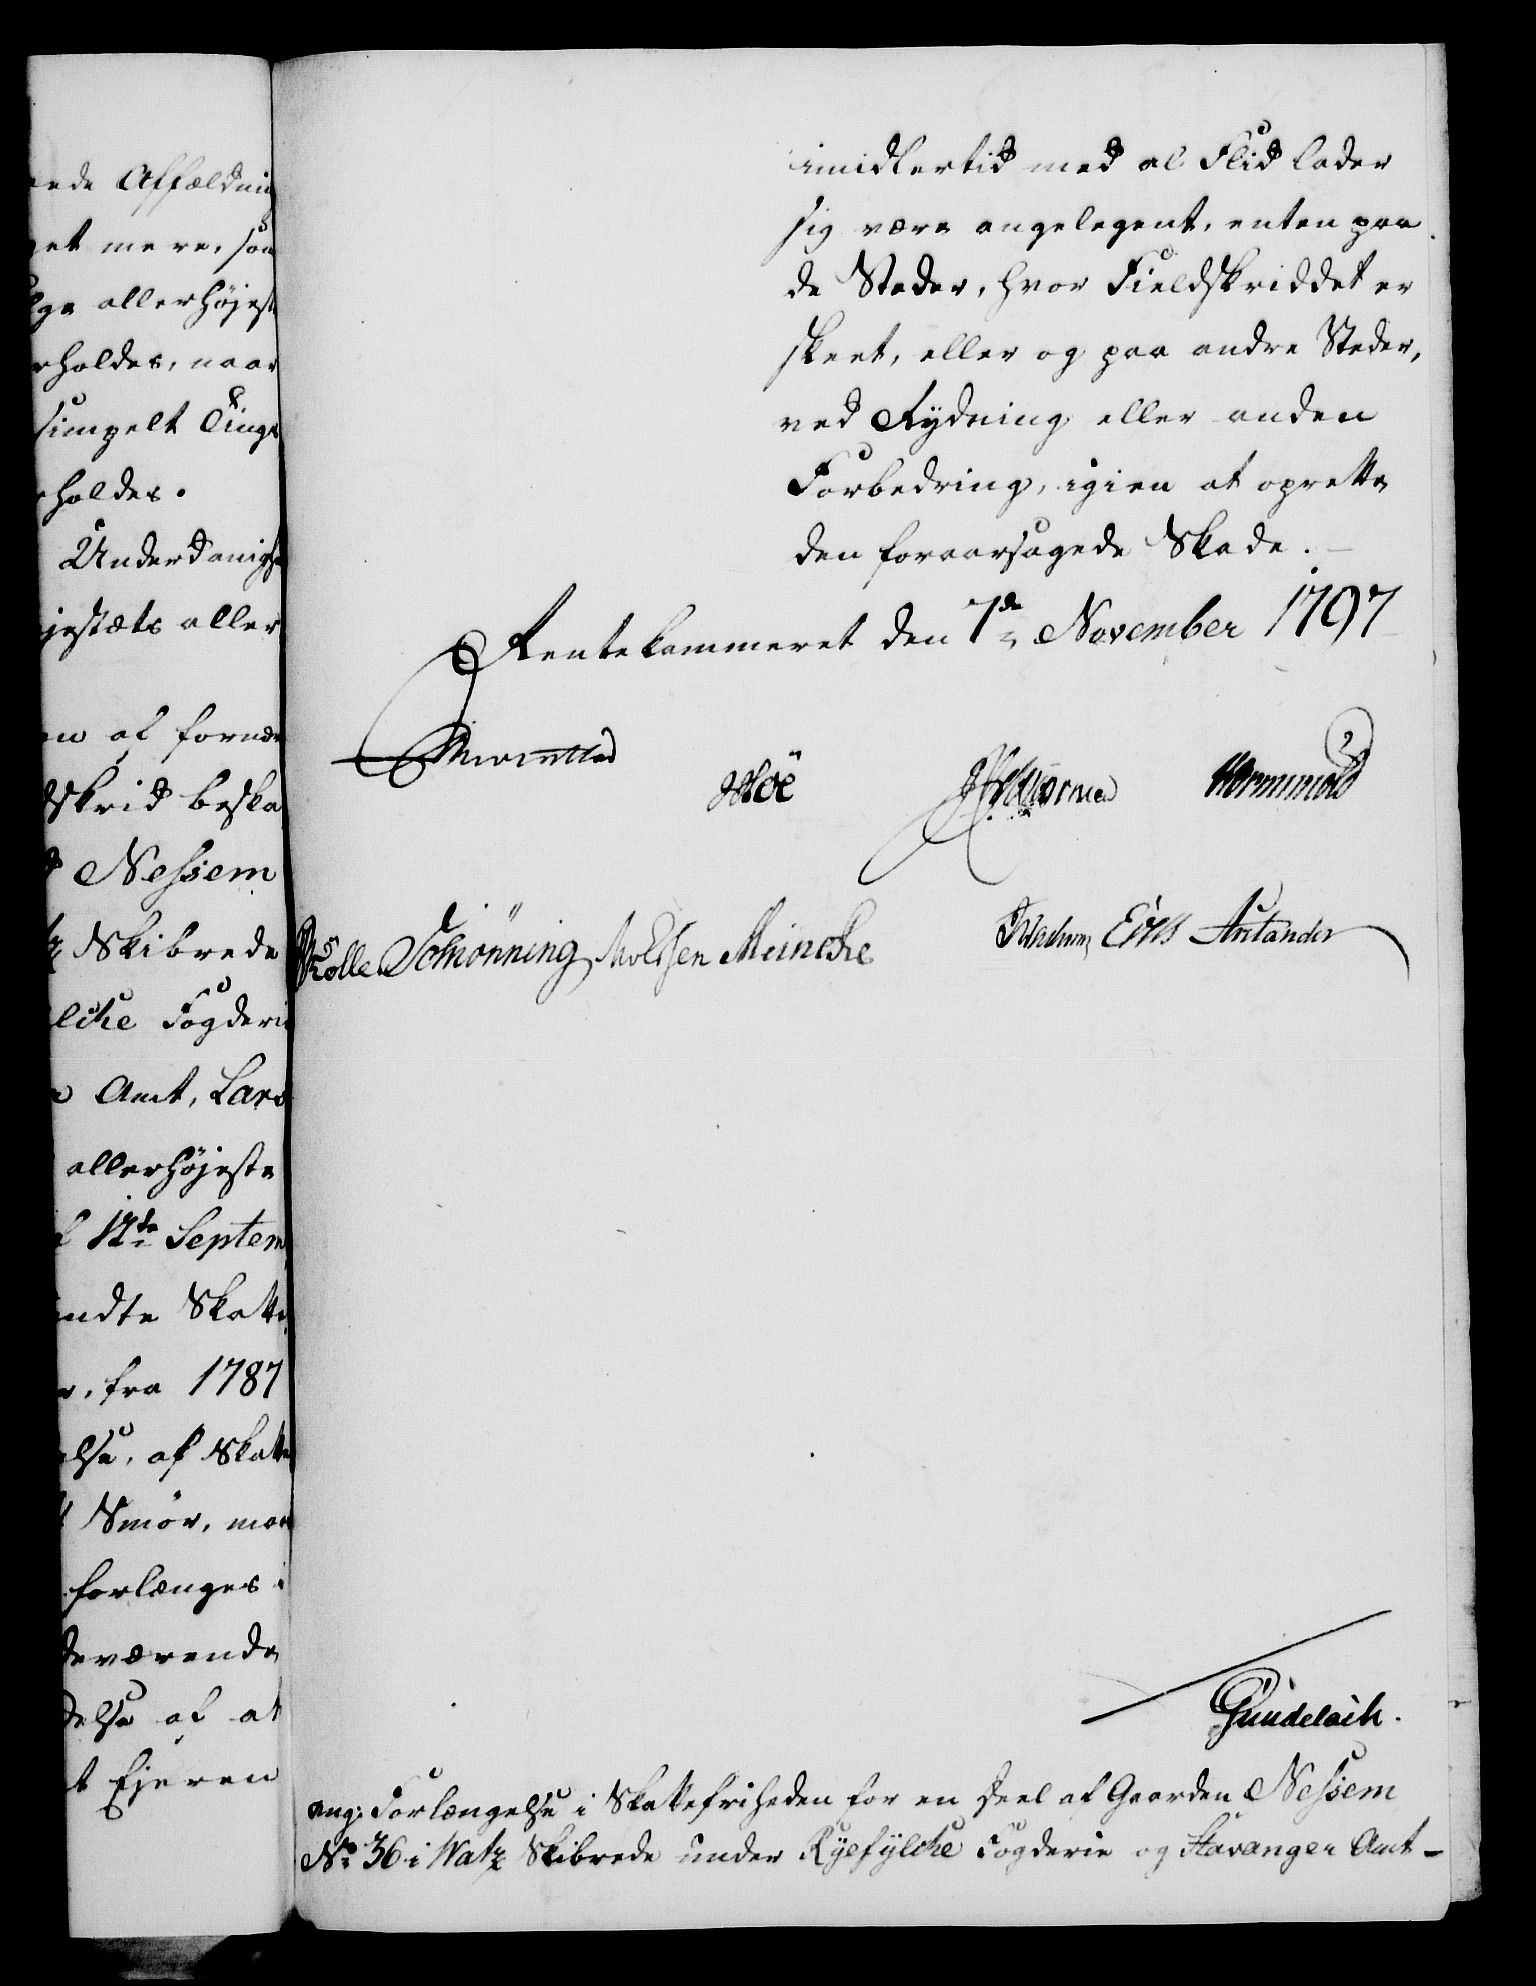 ede Affældnin
et mere, som
lge allerhøjest
holdes, naar
simpelt Tings
holdes.
Underdanigst
jestæts aller
en af fornæv
dskrid beska
Nessem
Skibrede
lche Fogderi
Amt, Lars
allerhøjeste
12te Septem
ndte Skatte
, fra 1787
else, af Skatte
Smör, maa
forlænges i
deværende
delse af at
t Ejeren
imidlertid med al Flid lader
sig være angelegent, enten paa
de Steder, hvor Fieldskriddet er
skeet, eller og paa andre Steder,
ved Rydning eller anden
Forbedring, igien at oprette
den foraarsagede Skade.
Rentekammeret den 7de November 1797
Hoë Wormskiold
Schönning Meincke
Eiers
Gundelach.
ang: Forlængelse i Skattefriheden for en deel af Gaarden Nessem
No 36 i Watz Skibrede under Ryefylche Fogderie og Stavanger Amt –